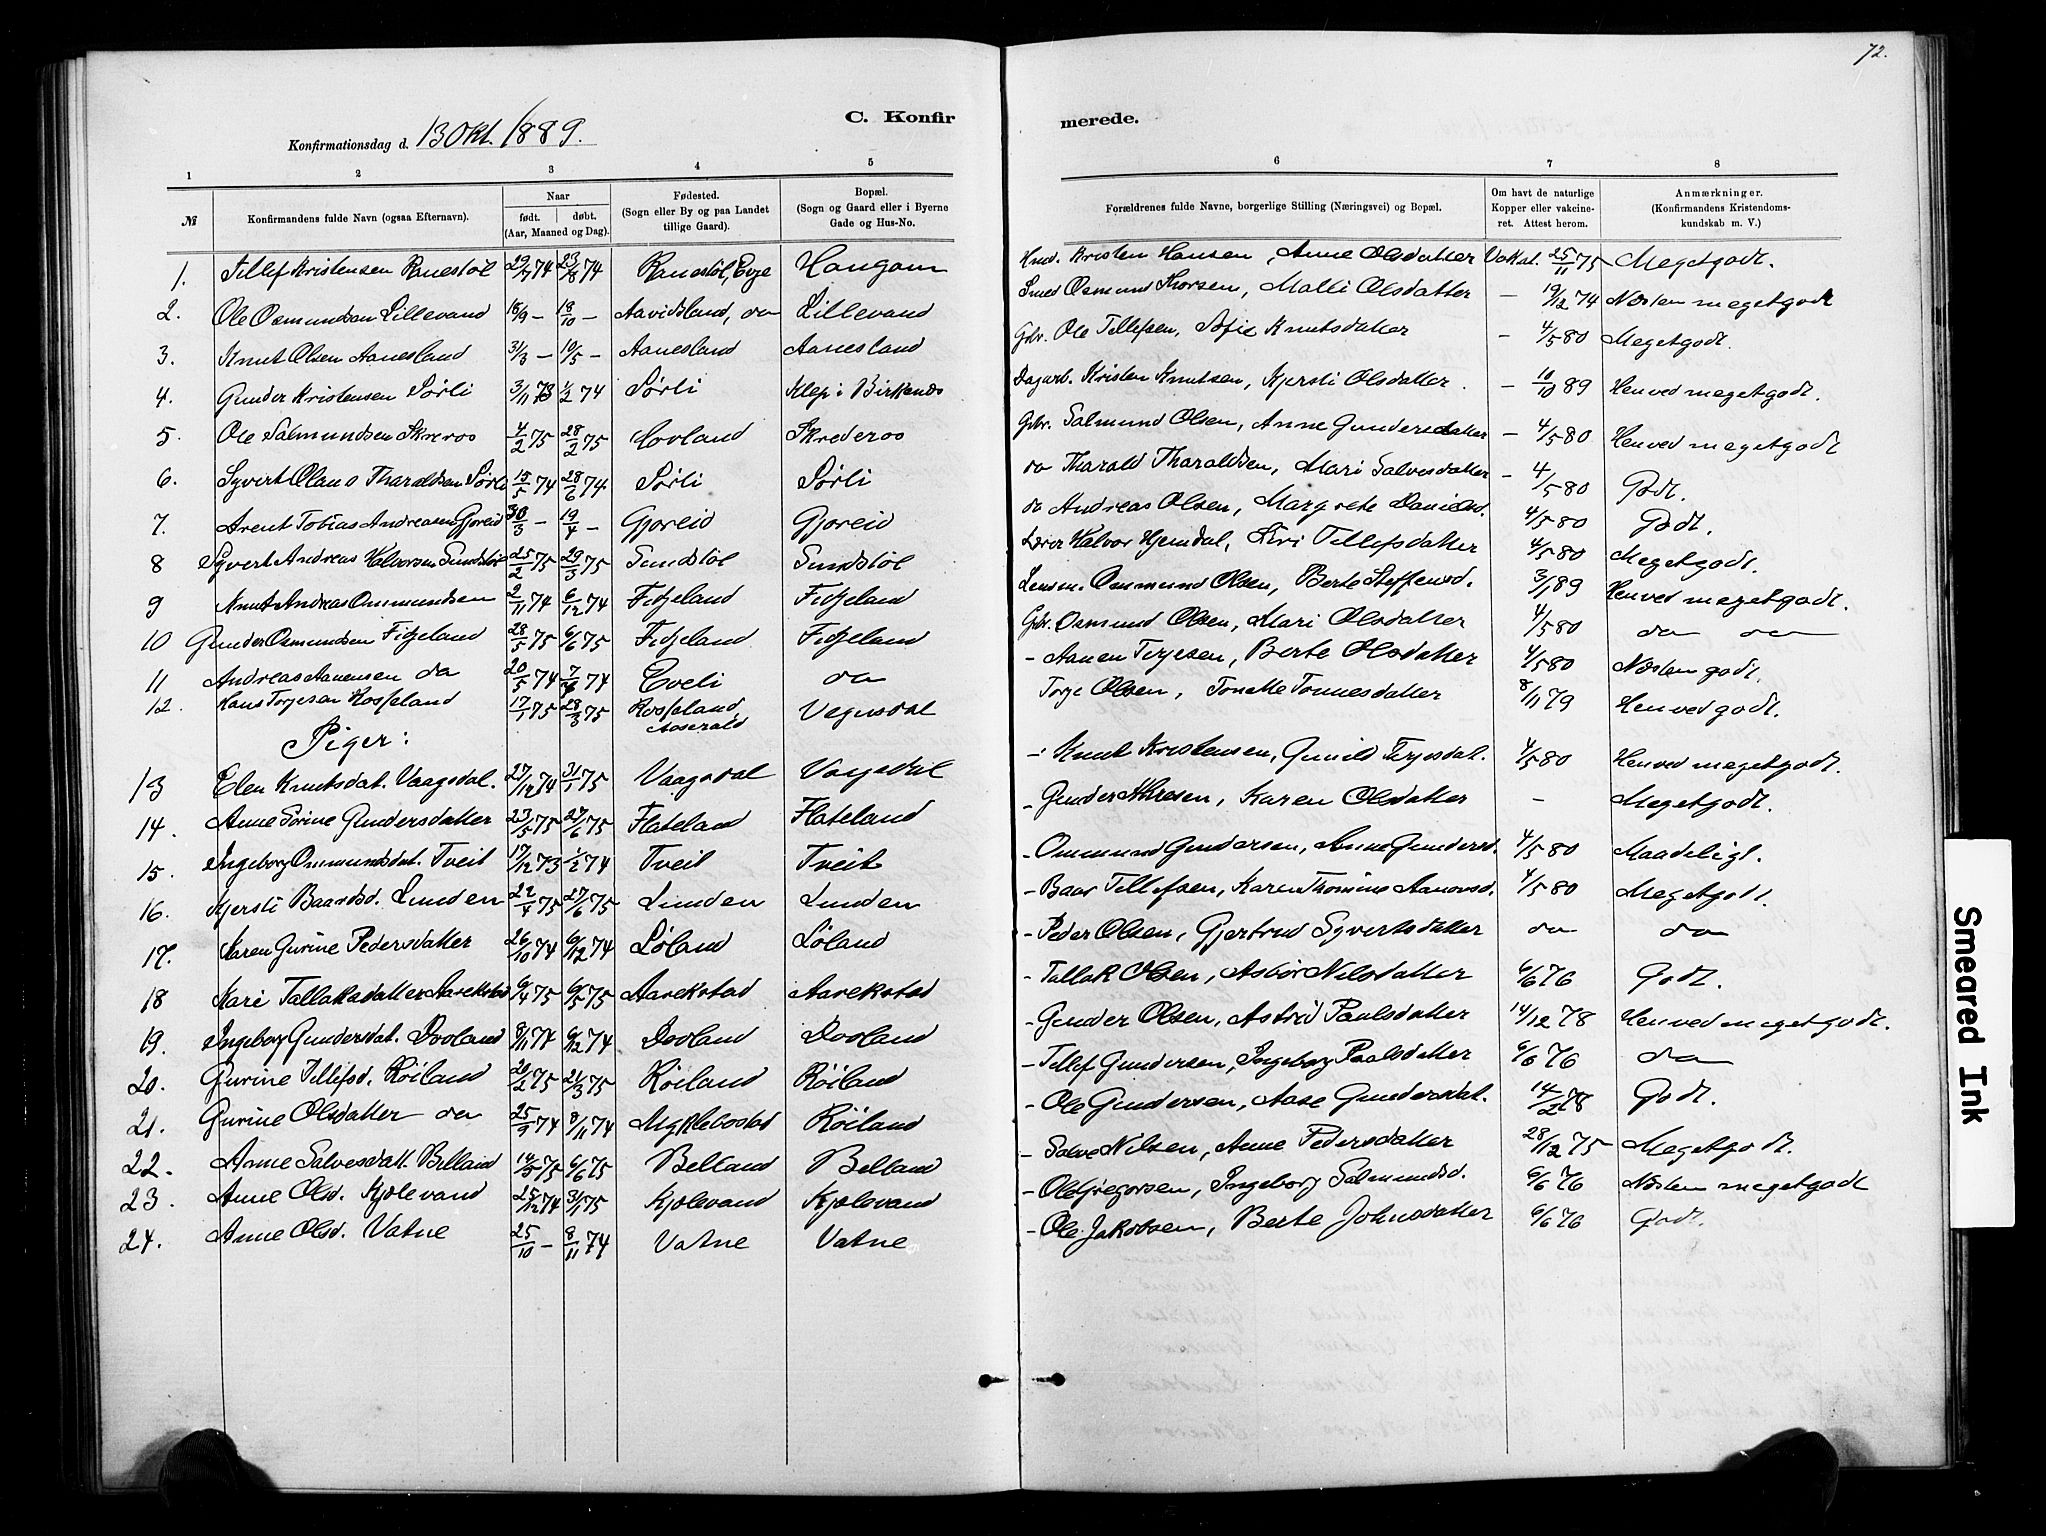 72.
C. Konfir merede.
Konfirmationsdag d. 13 Okt. 1889.
1 2 3 4 5 6 7 8
№ Konfirmandens fulde Navn (ogsaa Efternavn). Naar født. døbt. (Aar, Maaned og Dag). Fødested. (Sogn eller By og paa Landet tillige Gaard). Bopæl. (Sogn og Gaard eller i Byerne Gade og Hus-No. Forældrenes fulde Navne, borgerlige Stilling (Næringsvei) og Bopæl. Om havt de naturlige Kopper eller vakcineret. Attest herom. Anmærkninger. (Konfirmandens Kristendomskundskab m. V.)
1. Tellef Kristensen Ranestøl 29/7 74 23/8 74 Ranestøl, Evje Haugann Kristen Hansen, Anne Olsdatter Vakat. 25/11 75 Megetgodt.
2. Ole Osmundsen Lillevand 18/9 — 18/10 — Aavidsland, do Lillevand Smed Osmund Thorsen, Malli Olsdatter — 19/12 74 Næsten megetgodt
3. Knut Olsen Aanesland 31/3 — 10/5 — Aanesland Aanesland Gbr. Ole Tellefsen, Sofie Knutsdatter — 4/5 80 Megetgodt.
4. Gunder Kristensen Sørli 3/11 73 1/2 74 Sørli Klep i Birkenæs Dagarb. Kristen Knutsen, Kjersti Olsdatter. — 10/10 89 Henved megetgodt.
5. Ole Salmundsen Skreros 4/2 75 28/2 75 Hovland Skrederos Gbr. Salmund Olsen, Anne Gundersdatter — 4/5 80 Henved megetgodt
6. Syvert Olaus Tharaldsen Sørli 15/5 74 28/6 74 Sørli Sørli do Tharald Tharaldsen, Mari Salvesdatter — 4/5 80 Godt.
7. Arent Tobias Andreasen Gjoreid 30/3 — 19/4 — Gjoreid Gjoreid do Andreas Olsen, Margrete Danielsd. 4/5 80 Godt.
8 Syvert Andreas Halvorsen Sundstøl 25/2 75 29/3 75 Sundstøl Sundstøl Lærer Halvor Hjemdal, Siri Tellefsdatter 4/5 80 Megetgodt.
9 Knut Andreas Ommundsen 2/11 74 6/12 74 Fidjeland Fidjeland Lensm. Ommund Olsen, Berte Steffensd. 3/1 89 Henved megetgodt.
10 Gunder Osmundsen Fidjeland 28/5 75 6/6 75 Fidjeland Fidjeland Gbr. Osmund Olsen, Mari Olsdatter 4/5 80 do do
11 Andreas Aanensen do 20/5 74 74 Eveli do — Aanen Terjesen, Berte Olsdatter 4/5 80 Næsten godt.
12. Hans Torjesen Kosseland 17/1 75 28/3 75 Kosseland Aaserald Vegusdal Torje Olsen, Tonette Tonnesdatter 8/11 79 Henved godt.
Piger:
13 Elen Knutsdat. Vaagsdal. 27/12 74 31/1 75 Vaagsdal Vaagsdal — Knut Kristensen, Gunild Terjesdat. 4/5 80 Henved megetgodt.
14. Anne Sørine Gundersdatter 23/5 75 27/6 75 Flateland Flateland — Gunder, Karen Olsdatter — Megetgodt.
15. Ingeborg Ommundsdat. Tveit 17/12 73 1/2 74 Tveit Tveit — Ommund Gundersen, Anne Gundersd. 4/5 80 Maadeligt.
16. Kjersti Baardsd. Lunden 22/4 75 27/6 75 Lunden Lunden — Baar Tellefsen, Karen Thomine Aanonsd. 4/5 80 Megetgodt.
17. Karen Gurine Pedersdatter 26/10 74 6/12 74 Løland Løland — Peder Olsen, Gjertrud Syvertsdatter do do
18 Kari Tallaksdatter Aarekstad 6/4 75 6/5 75 Aarekstad Aarekstad — Tallak Olsen, Asbør Nilsdatter 6/6 76 Godt.
19. Ingeborg Gundersdat. Dovland 8/11 74 6/12 74 Dovland Dovland — Gunder Olsen, Astrid Paalsdatter 14/12 78 Henved megetgodt.
20. Gurine Tellefsd. Røiland 20/2 75 21/3 75 Røiland Røiland — Tellef Gundersen, Ingeborg Paalsdatter 6/6 76 do
21. Gurine Olsdatter do 25/9 74 8/11 74 Myklebostad Røiland — Ole Gundersen, Aase Gundersdat. 14/2 78 Godt.
22. Anne Salvesdatt. Belland 14/5 75 6/6 75 Belland Belland — Salve Nilsen, Anne Pedersdatter 28/12 75 Megetgodt.
23. Anne Olsd. Kjølevand 25/12 74 31/1 75 Kjølevand Kjølevand — Ole Gregorsen, Ingeborg Salmundsd. 6/6 76 Næsten megetgodt
24. Anne Olsd. Vatne 25/10 — 8/11 74 Vatne Vatne — Ole Jakobsen, Berte Johnsdatter 6/6 76 Godt.
Smeared Ink